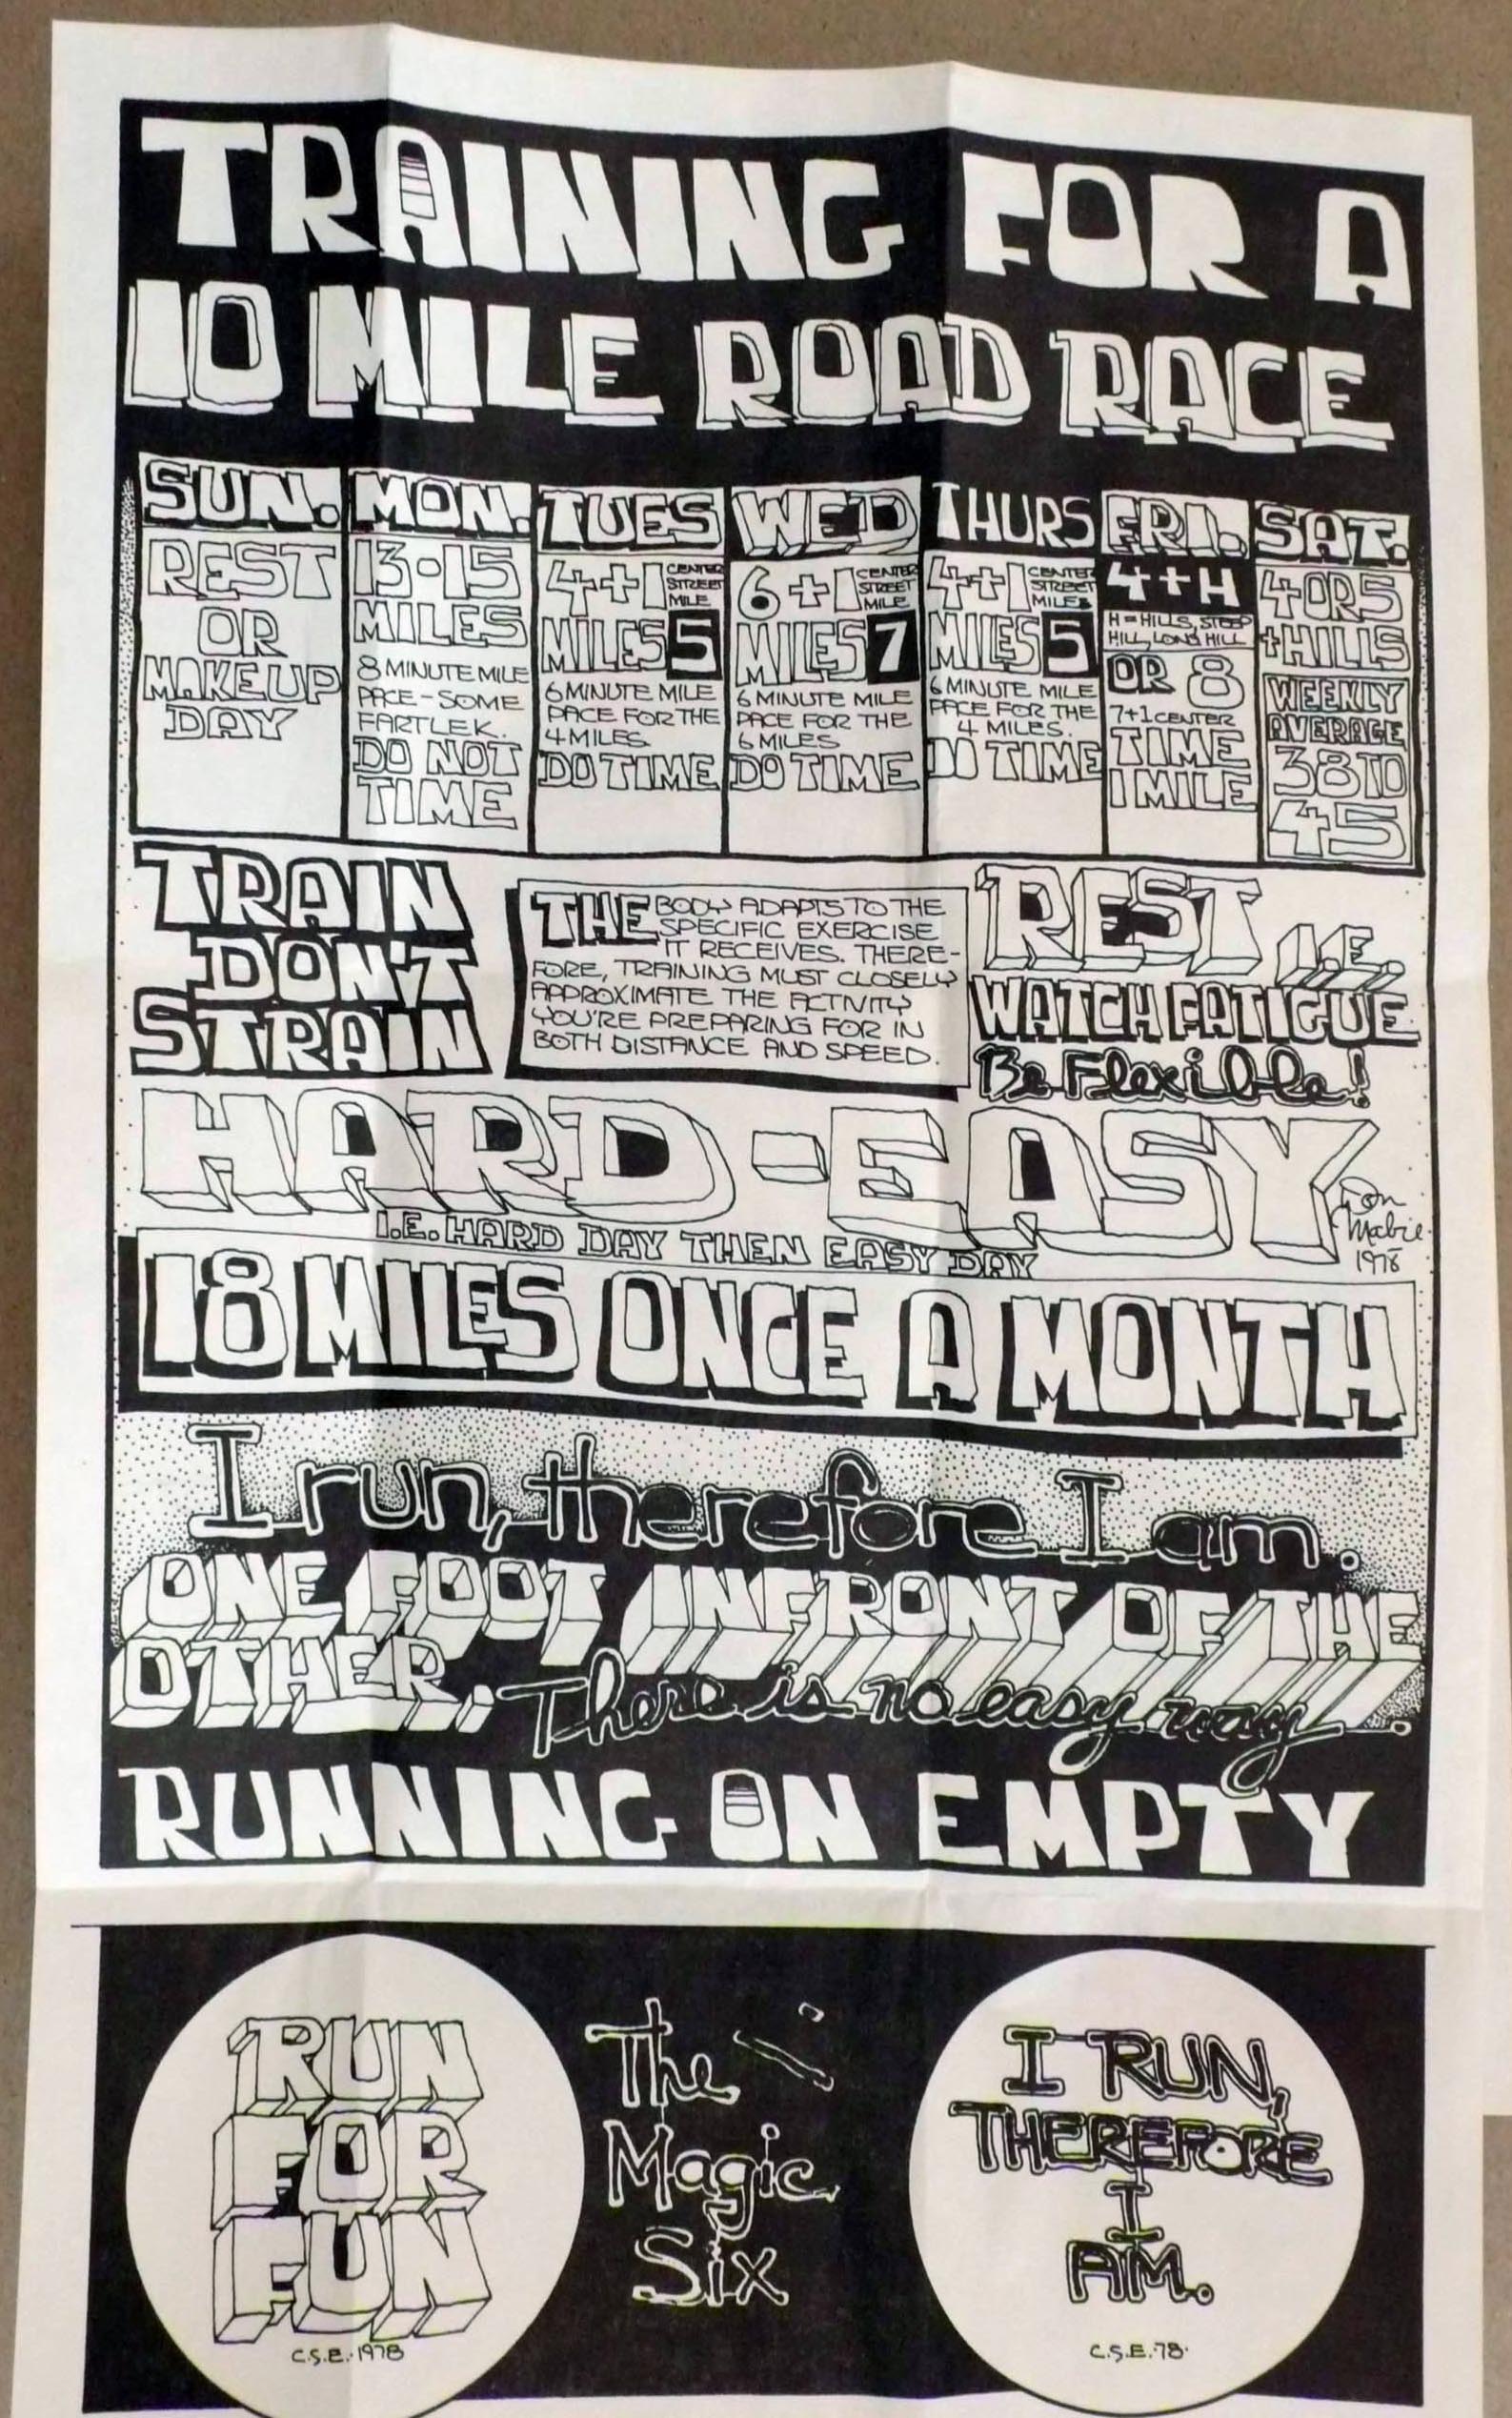 TRAINING FOR A
10 MILE ROAD RACE
SUN.
REST
OR
MAKEUP
DAY
MON.
13-15
MILES
8 MINUTE MILE
PACE - SOME
FARTLEK.
DO NOT
TIME
TUES
4+1 CENTER
STREET
MILE
MILES 5
6 MINUTE MILE
PACE FOR THE
4 MILES
DO TIME
WED
6+1 CENTER
STREET
MILE
MILES 7
6 MINUTE MILE
PACE FOR THE
6 MILES
DO TIME
THURS
4+1 CENTER
STREET
MILE
MILES 5
6 MINUTE MILE
PACE FOR THE
4 MILES.
DO TIME
FRI.
4+H
H=HILLS, STEEP
HILL, LONG HILL
OR 8
7+1 CENTER
TIME
1 MILE
SAT.
4 OR 5
+HILLS
WEEKLY
AVERAGE
38 TO
45
TRAIN
DON'T
STRAIN
THE BODY ADAPTS TO THE
SPECIFIC EXERCISE
IT RECEIVES. THERE-
FORE, TRAINING MUST CLOSELY
APPROXIMATE THE ACTIVITY
YOU'RE PREPARING FOR IN
BOTH DISTANCE AND SPEED.
REST I.E.
WATCH FATIGUE
Be Flexible!
HARD-EASY
I.E. HARD DAY THEN EASY DAY
Don
Mabie
1978
18 MILES ONCE A MONTH
I run, therefore I am.
ONE FOOT INFRONT OF THE
OTHER. There is no easy way.
RUNNING ON EMPTY
RUN
FOR
FUN
C.S.E. 1978
The
Magic
Six
I RUN,
THEREFORE
I
AM.
C.S.E. 78.